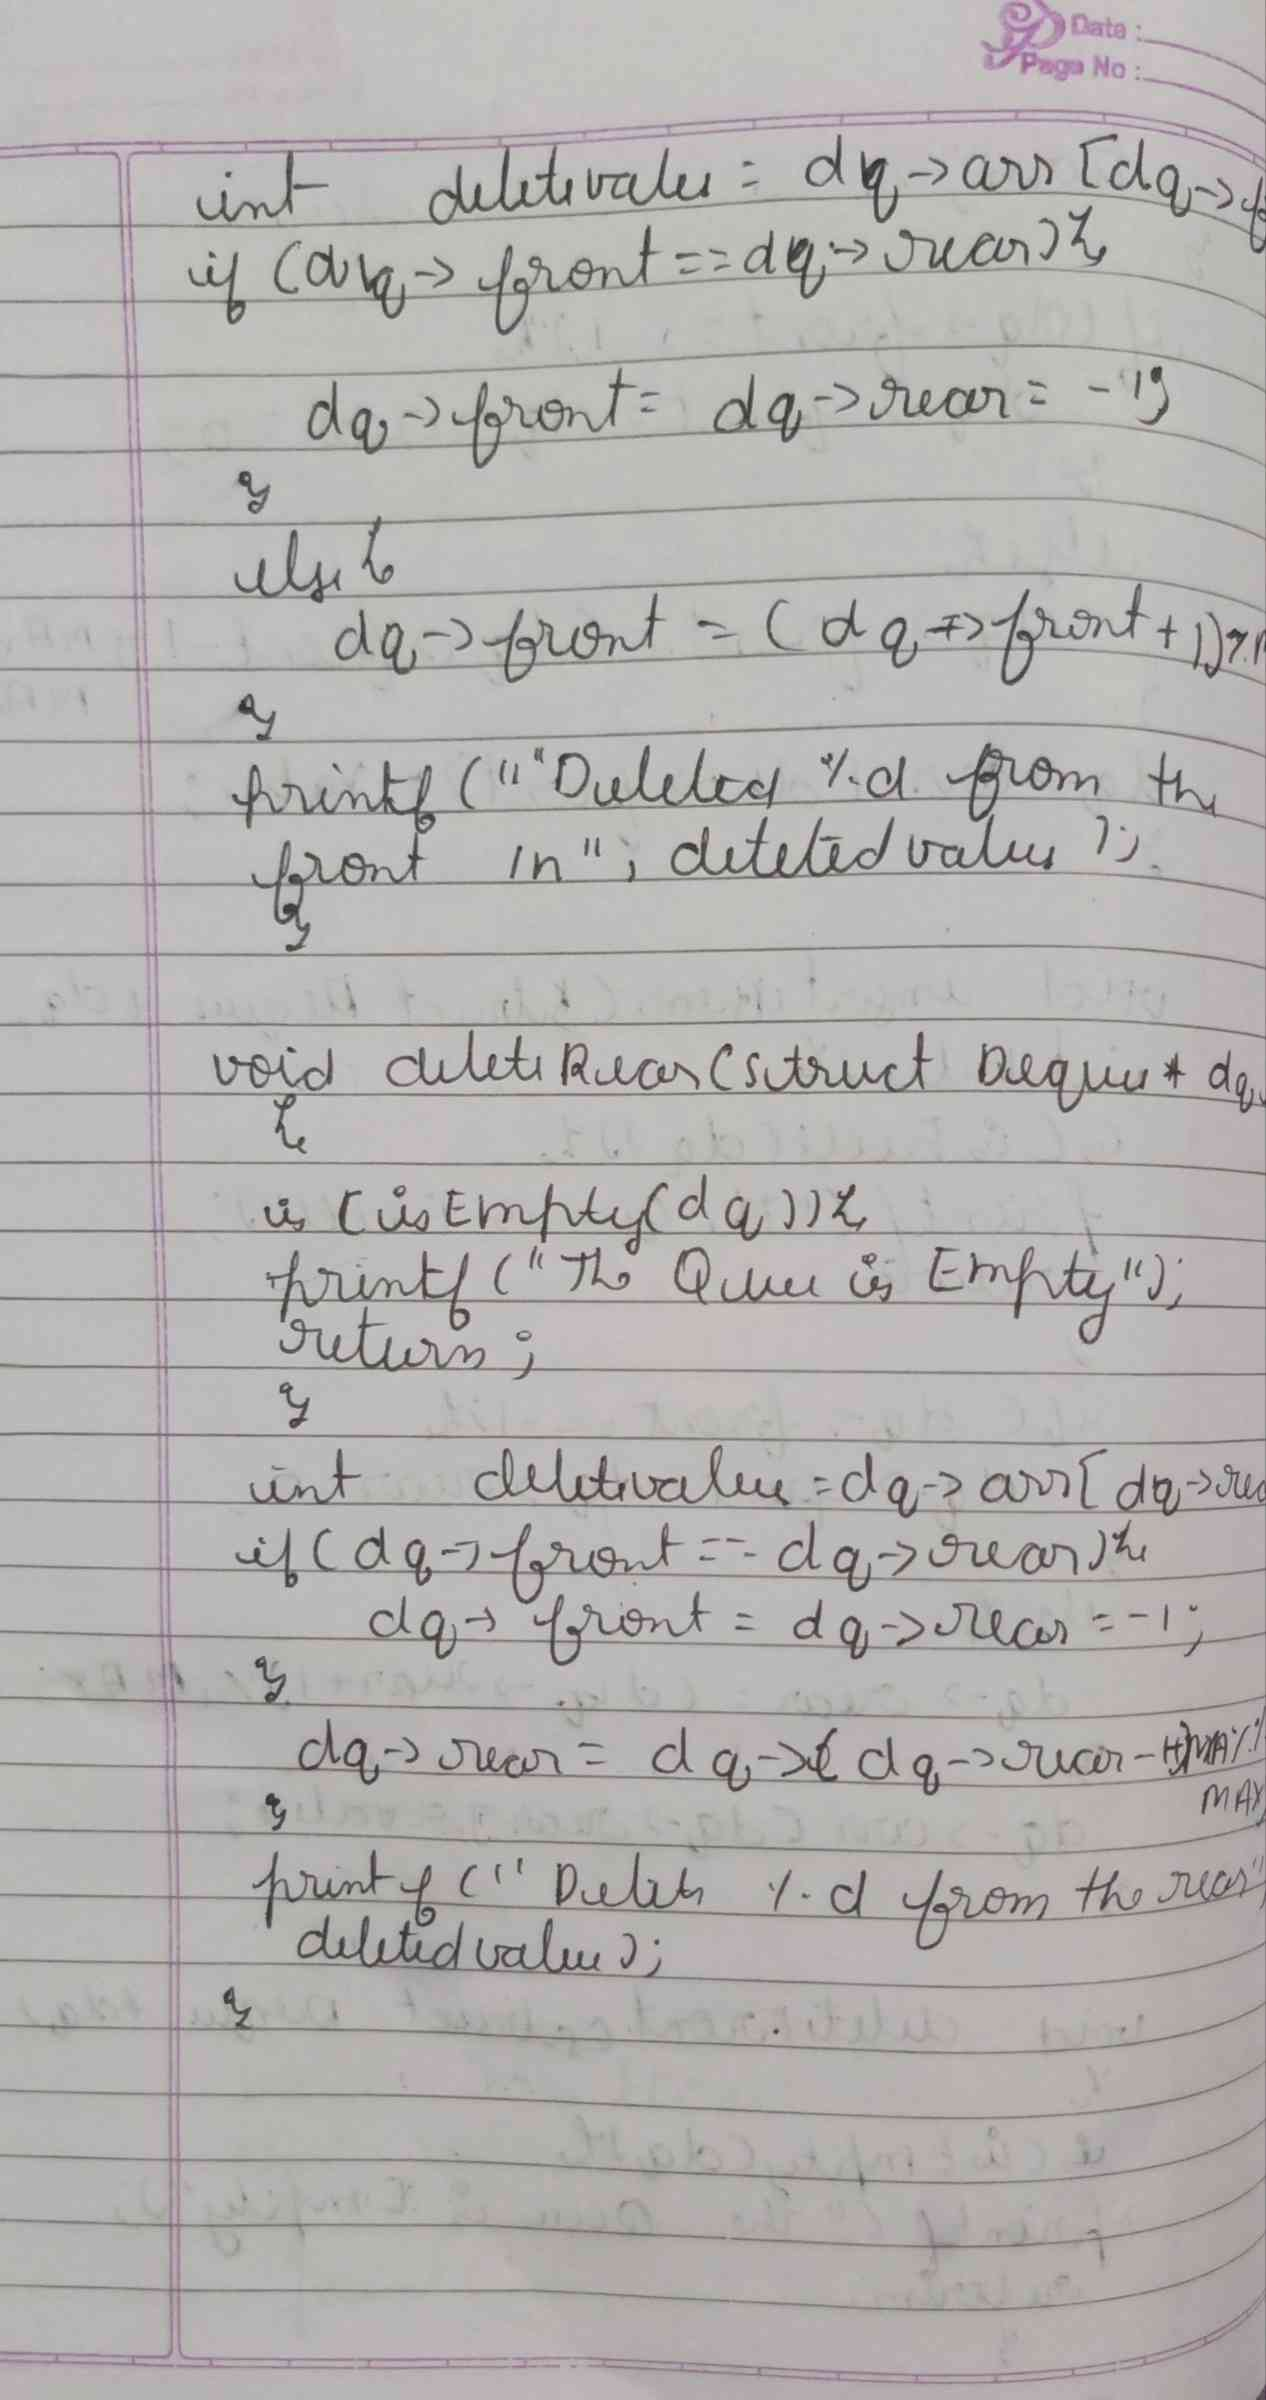 Date :
Page No :
int deletevalue = dq->arr[dq->f
if (dq-> front == dq-> rear){
dq->front = dq->rear = -1;
}
else{
dq->front = (dq->front+1)%
}
printf ("Deleted %d from the
front \n", deletedvalue );
}
void deleteRear(struct Deque* dq
{
is (isEmpty(dq)){
printf ("The Queue is Empty");
return ;
}
int deletevalue = dq->arr[dq->rea
if(dq->front == dq->rear){
dq-> front = dq->rear = -1;
}
dq->rear = dq->( dq->rear-
MAX
}
printf (" Delete %d from the rear"
deletedvalue);
}